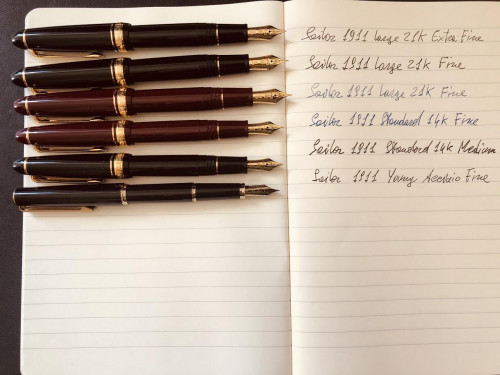 Sailor 1911 large 21k Extra Fine
Sailor 1911 large 21k Fine
Sailor 1911 large 21k Fine
Sailor 1911 Standard 14k Fine
Sailor 1911 Standard 14k Medium
Sailor 1911 Young Fine